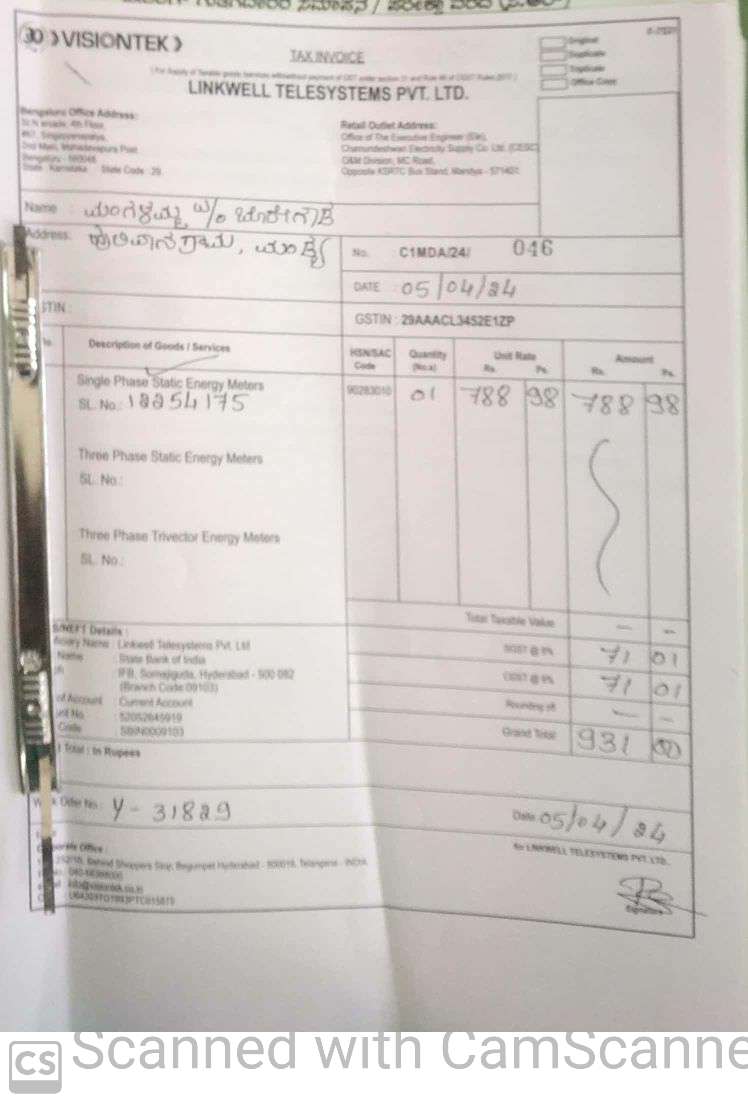 VISIONTEK
TAX INVOICE
Original
Duplicate
Triplicate
Office Copy
LINKWELL TELESYSTEMS PVT. LTD.
Bengaluru Office Address:
4th Floor,
2nd Main, Mahadevapura Post
Bengaluru - 560048
State : Karnataka State Code : 29
Retail Outlet Address:
Office of The Executive Engineer (Ele),
Chamundeshwari Electricity Supply Co. Ltd. (CESC)
O&M Division, MC Road,
Opposite KSRTC Bus Stand, Mandya - 571401
Name : ಮಂಗಳಮ್ಮ W/o
Address: ಗ್ರಾಮ, ಮಂಡ್ಯ
No. : C1MDA/24/ 046
DATE : 05/04/24
GSTIN : 29AAACL3452E1ZP
STIN :
Description of Goods / Services HSN/SAC Code Quantity (No.s) Unit Rate Rs. Ps. Amount Rs. Ps.
Single Phase Static Energy Meters 90283010 01 788 98 788 98
SL. No.: 12254175
Three Phase Static Energy Meters
SL. No.:
Three Phase Trivector Energy Meters
SL. No.:
Total Taxable Value — —
S/NEFT Details :
ficiary Name : Linkwell Telesystems Pvt. Ltd
SGST @ 9% 71 01
Name : State Bank of India
IFB, Somajiguda, Hyderabad - 500 082
(Branch Code:09103)
CGST @ 9% 71 01
of Account : Current Account
Rounding off — —
unt No. : 52052645919
Code : SBIN0009103
Grand Total 931 00
Total : In Rupees
Work Oder No. Y - 31829
Date 05/04/24
for LINKWELL TELESYSTEMS PVT. LTD.
porate Office :
Behind Shoppers Stop, Begumpet Hyderabad - 500016, Telangana - INDIA
info@visiontek.co.in
Signature
CS Scanned with CamScanne